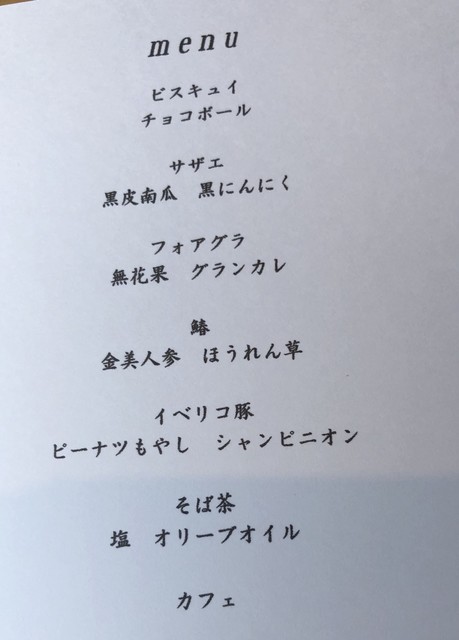 menu
ビスキュイ
チョコボール
サザエ
黒皮南瓜　黒にんにく
フォアグラ
無花果　グランカレ
鰆
金美人参　ほうれん草
イベリコ豚
ピーナツもやし　シャンピニオン
そば茶
塩　オリーブオイル
カフェ